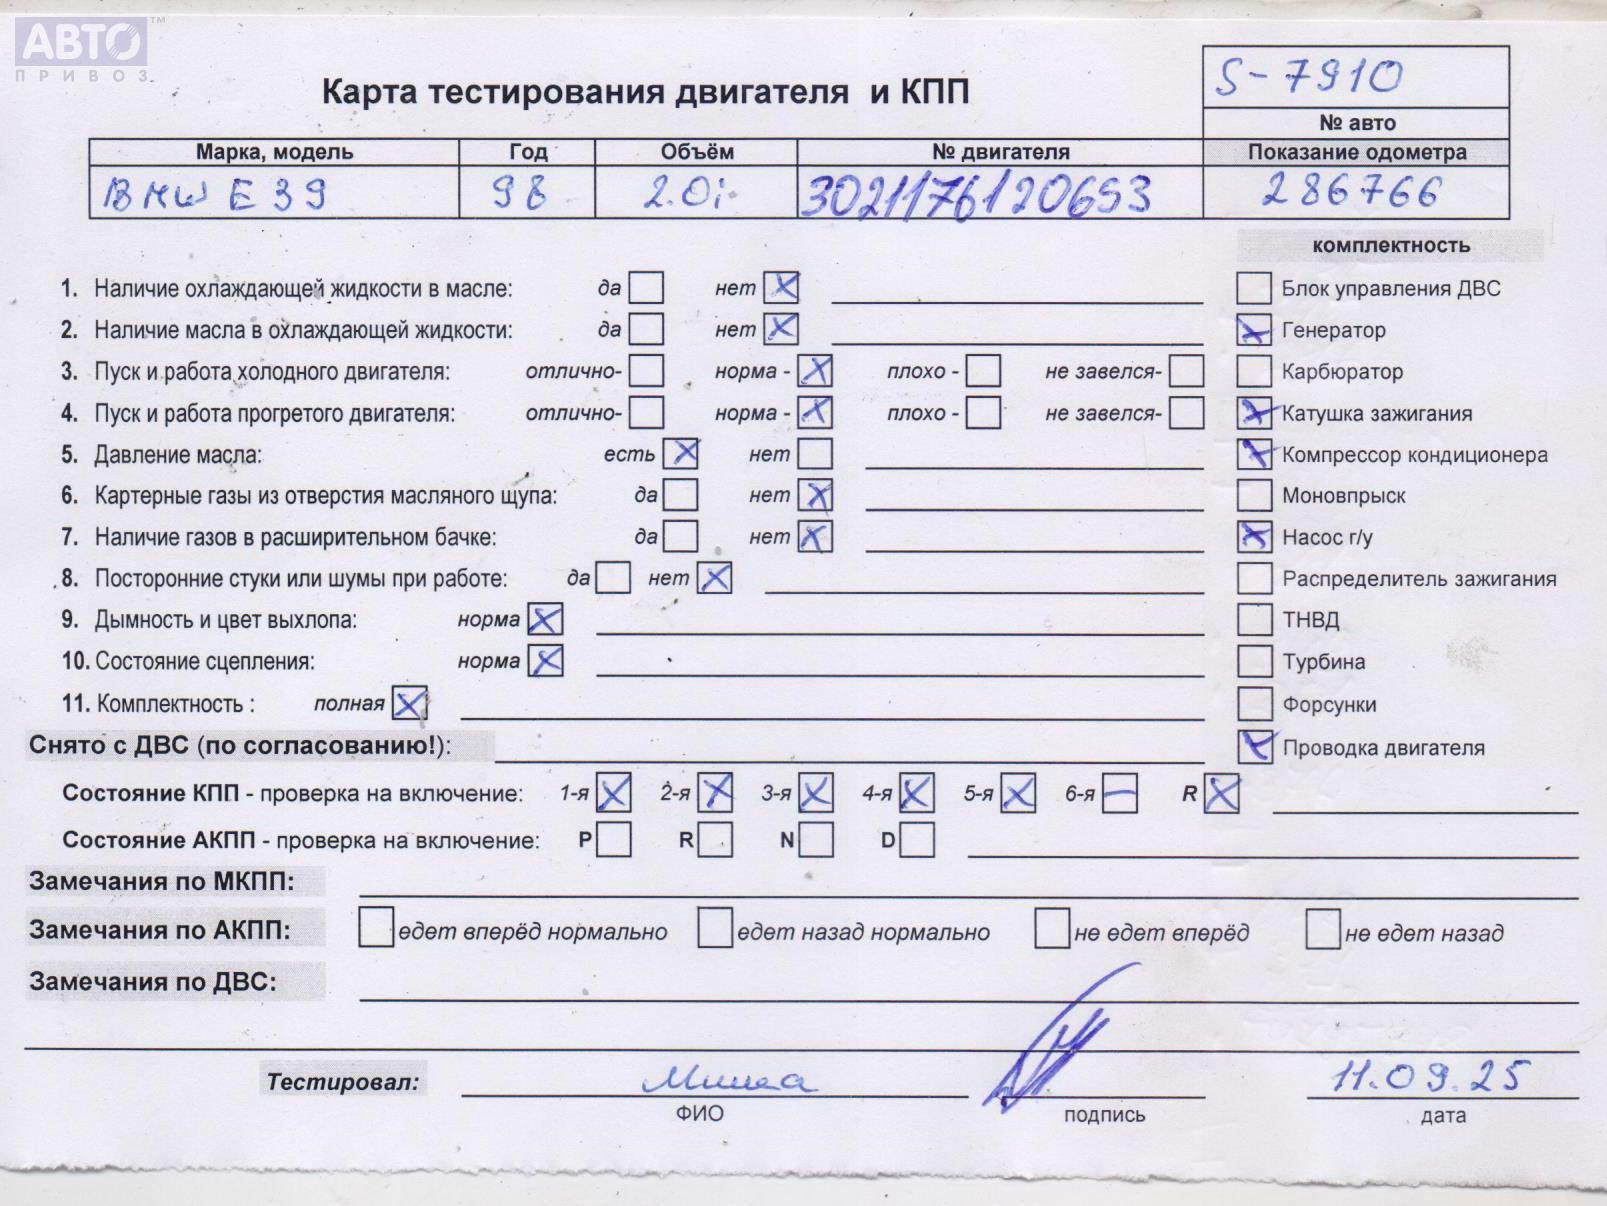 АВТО™
ПРИВОЗ
Карта тестирования двигателя и КПП
S-7910
№ авто
Марка, модель Год Объём № двигателя Показание одометра
BMW E39 98 2.0i 30211761206S3 286766
комплектность
1. Наличие охлаждающей жидкости в масле: да нет X
Блок управления ДВС
2. Наличие масла в охлаждающей жидкости: да нет X
X Генератор
3. Пуск и работа холодного двигателя: отлично- норма - X плохо - не завелся-
Карбюратор
4. Пуск и работа прогретого двигателя: отлично- норма - X плохо - не завелся-
X Катушка зажигания
5. Давление масла: есть X нет
X Компрессор кондиционера
6. Картерные газы из отверстия масляного щупа: да нет X
Моновпрыск
7. Наличие газов в расширительном бачке: да нет X
X Насос г/у
8. Посторонние стуки или шумы при работе: да нет X
Распределитель зажигания
9. Дымность и цвет выхлопа: норма X
ТНВД
10. Состояние сцепления: норма X
Турбина
11. Комплектность : полная X
Форсунки
Снято с ДВС (по согласованию!):
X Проводка двигателя
Состояние КПП - проверка на включение: 1-я X 2-я X 3-я X 4-я X 5-я X 6-я — R X
Состояние АКПП - проверка на включение: P R N D
Замечания по МКПП:
Замечания по АКПП: едет вперёд нормально едет назад нормально не едет вперёд не едет назад
Замечания по ДВС:
Тестировал: Миша 11.09.25
ФИО подпись дата